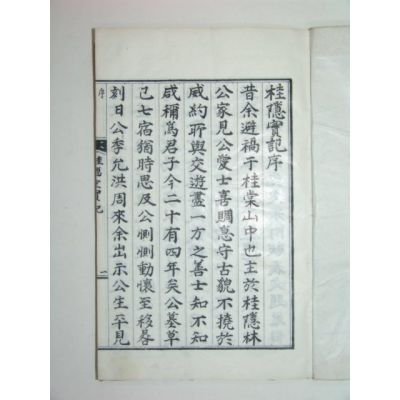 桂隱實記序
昔余避禍于桂棠山中也主於桂隱林
公家見公愛士喜賙急守古貌不撓於
威約所與交遊盡一方之善士知不知
咸稱爲君子今二十有四年矣公墓草
已七宿猶時思及公惻惻動懷至移晷
刻日公季允洪周來余出示公生平見
序
桂隱實記